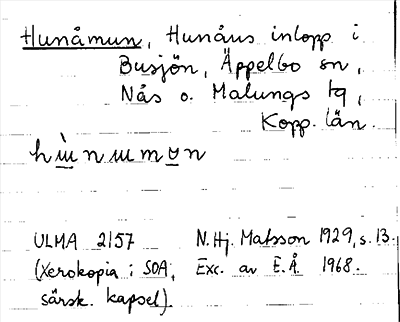 Hunåmun, Hunåns inlopp i
Busjön, Äppelbo sn,
Nås o. Malungs tg,
Kopp. län.
ULMA 2157 N.Hj. Matsson 1929, s. 13.
(Xerokopia i SOA, Exc. av E.Å. 1968.
särsk. kapsel).